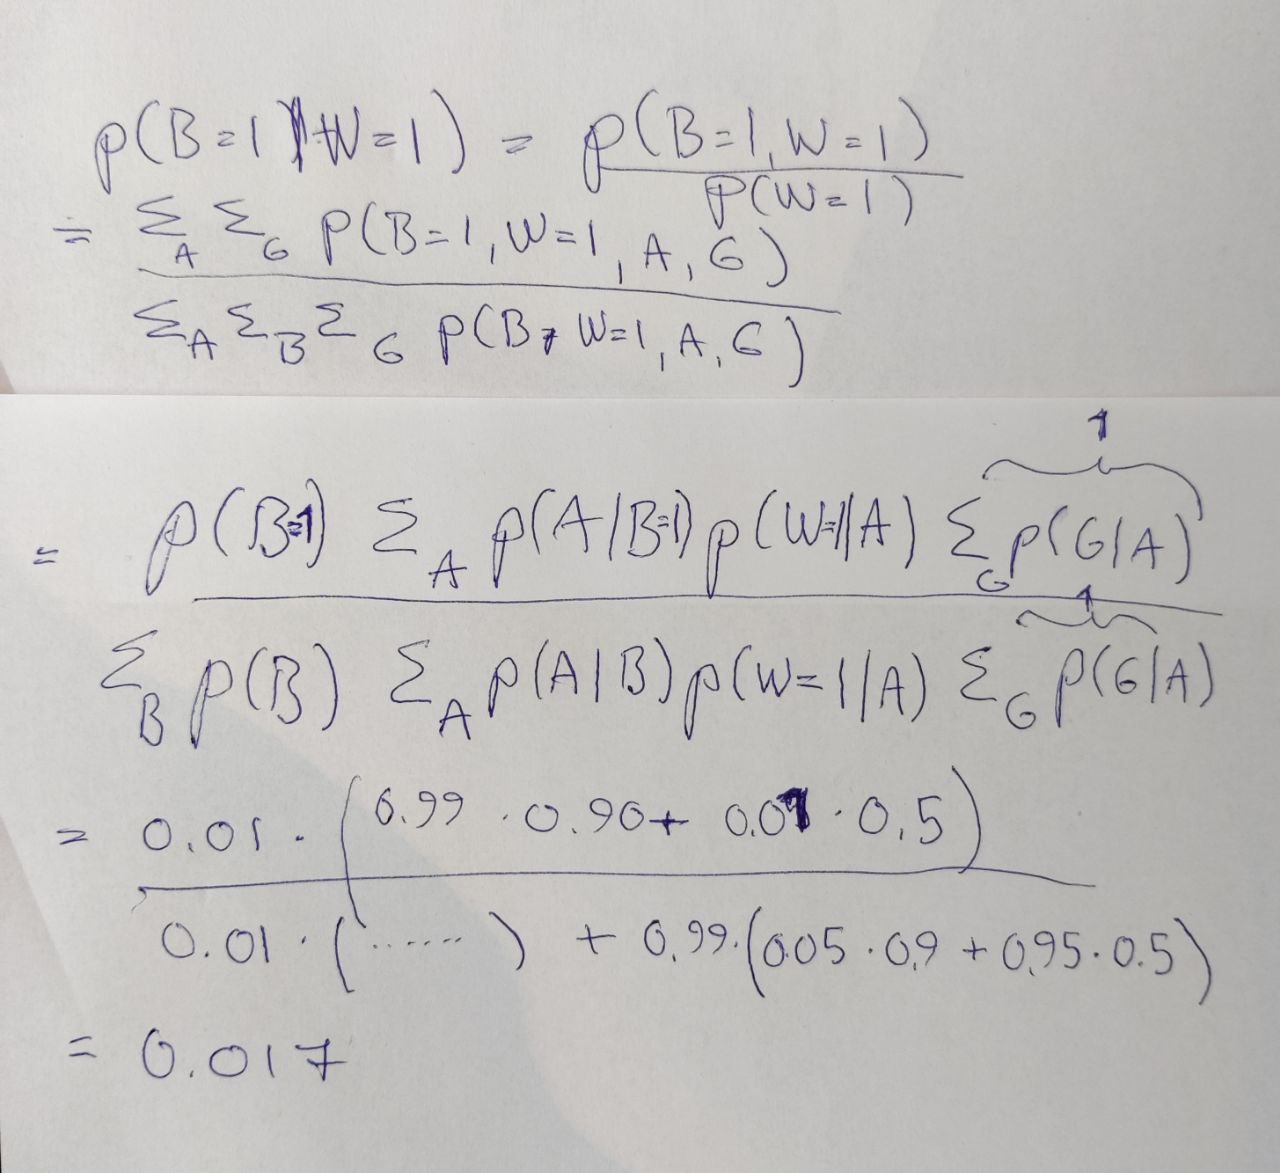 p(B=1|W=1) = p(B=1,W=1)
P(W=1)
= Σ_A Σ_G p(B=1,W=1,A,G)
Σ_A Σ_B Σ_G p(B, W=1,A,G)
1
= p(B=1) Σ_A p(A|B=1) p(W=1|A) Σ_G p(G|A)
1
Σ_B p(B) Σ_A p(A|B) p(W=1|A) Σ_G p(G|A)
= 0.01 · (0.99 · 0.90 + 0.01 · 0.5)
0.01 · (......) + 0.99 · (0.05 · 0.9 + 0.95 · 0.5)
= 0.017